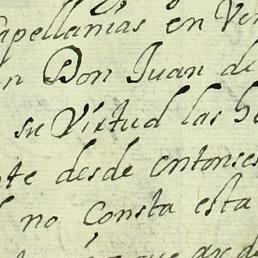 apellanias en Ve
n Don Juan de
su Virtud las h
te desde entonses
no Consta esta
que